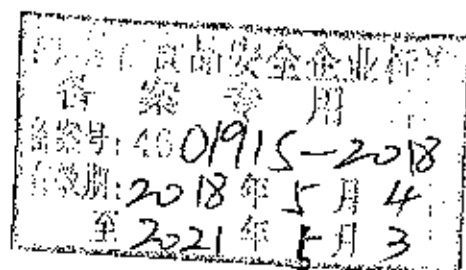 食品安全企业标准
备案专用
备案号:4601915-2018
有效期:2018年5月4
至2021年5月3